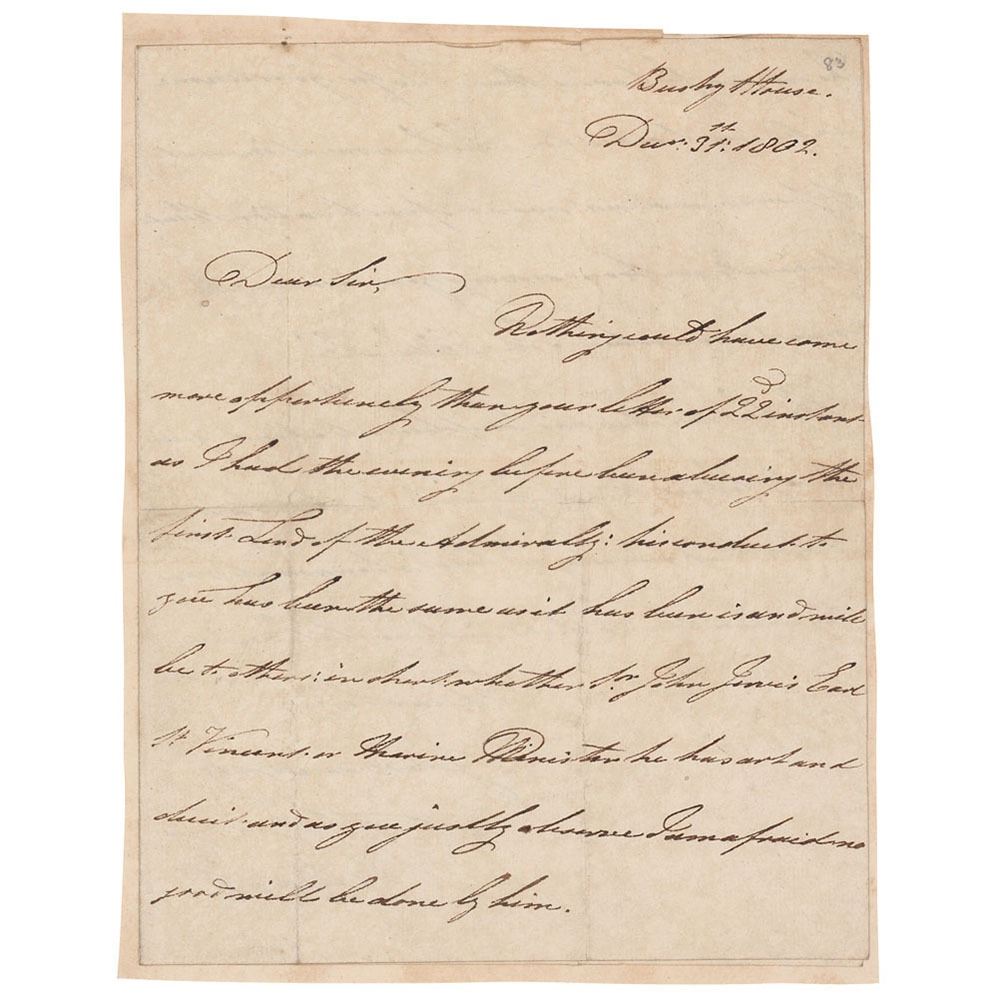 83
Bushy House.
Decr. 31st. 1802.
Dear Sir,
Nothing could have come
more opportunely than your letter of 22d instant
as I had the evening before been abusing the
first Lord of the Admiralty: his conduct to
you has been the same as it has been is and will
be to others: in short whether Sr. John Jervis Earl
St Vincent or Marine Minister he has art and
deceit and as you justly observe I am afraid no
good will be done by him.